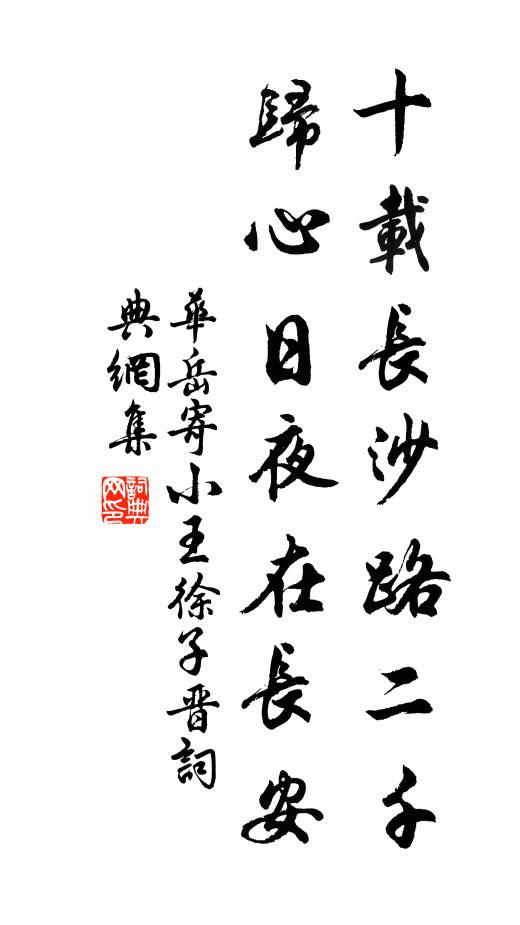 十載長沙路二千
歸心日夜在長安
華岳寄小王徐子晋詞
典網集
詞典网印